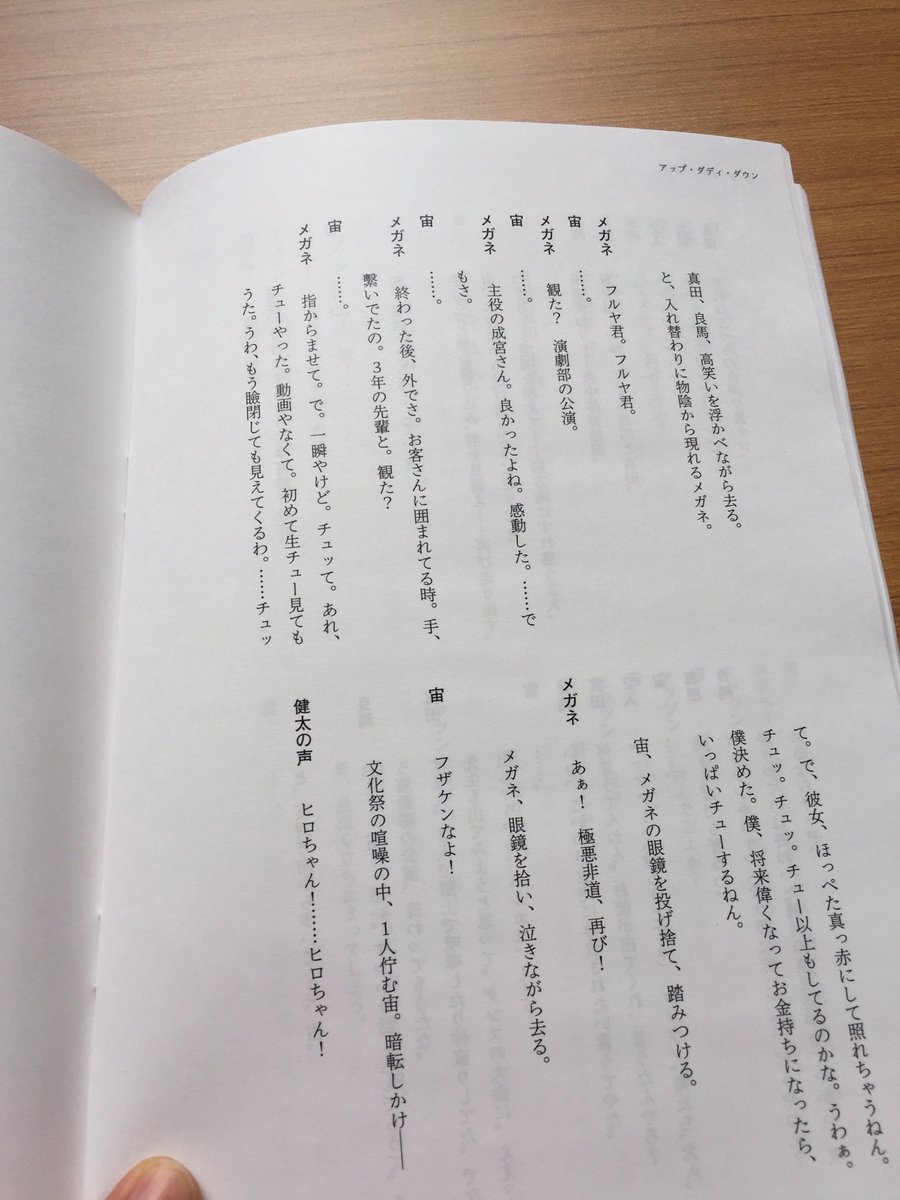 アップ・ダディ・ダウン
真田、良馬、高笑いを浮かべながら去る。
と、入れ替わりに物陰から現れるメガネ。
メガネ　フルヤ君。フルヤ君。
宙　……。
メガネ　観た？　演劇部の公演。
宙　……。
メガネ　主役の成宮さん。良かったよね。感動した。……で
もさ。
宙　……。
メガネ　終わった後、外でさ。お客さんに囲まれてる時。手、
繋いでたの。３年の先輩と。観た？
宙　……。
メガネ　指からませて。で。一瞬やけど。チュッて。あれ、
チューやった。動画やなくて。初めて生チュー見ても
うた。うわ、もう瞼閉じても見えてくるわ。……チュッ
て。で、彼女、ほっぺた真っ赤にして照れちゃうねん。
チュッ。チュッ。チュー以上もしてるのかな。うわぁ。
僕決めた。僕、将来偉くなってお金持ちになったら、
いっぱいチューするねん。
宙、メガネの眼鏡を投げ捨て、踏みつける。
メガネ　あぁ！　極悪非道、再び！
メガネ、眼鏡を拾い、泣きながら去る。
宙　フザケンなよ！
文化祭の喧噪の中、１人佇む宙。暗転しかけ――
健太の声　ヒロちゃん！……ヒロちゃん！